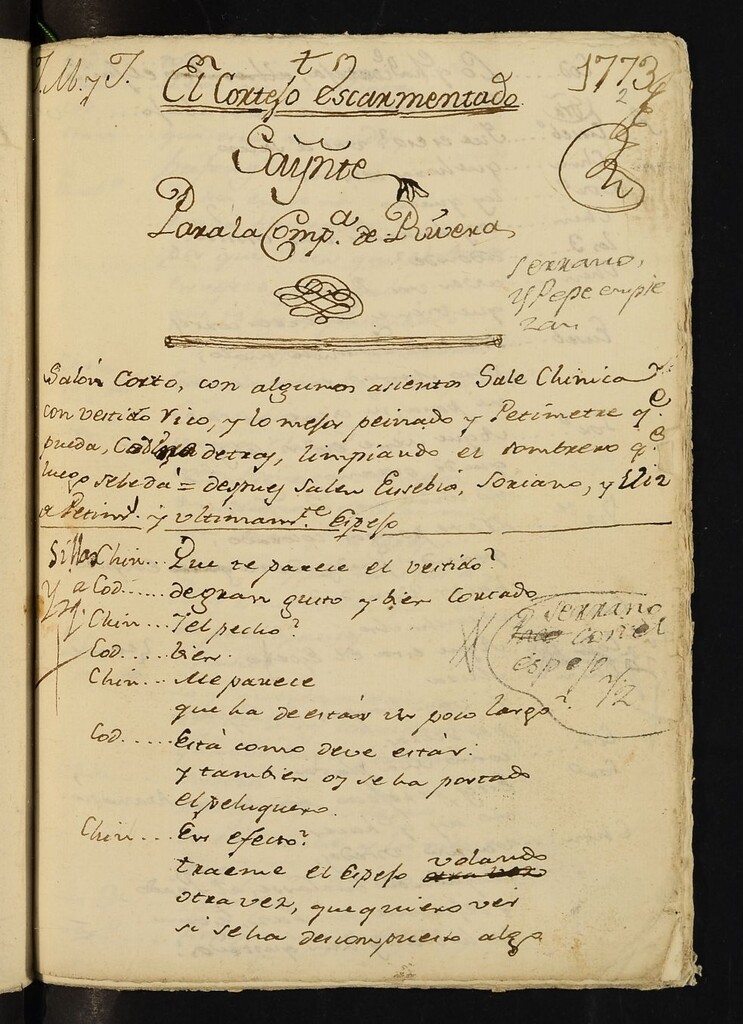 J. M. y J.
1773
El Cortejo escarmentado
2
Saynte
Para la Comp.a de Rivera
Serrano,
y Pepe empie
zan
Salon Corto, con algunos asientos Sale Chinica
con vestido rico, y lo mejor peinado y Petimetre q.e
pueda, Codina detras, limpiando el sombrero q.e
luego se le dá = despues salen Eusebio, Soriano, y
a Petim.e y ultimam.te Espejo
Sillas Chin... Que te parece el vestido?
Cod..... de gran gusto y bien cortado
Chin... Y el pecho?
Serrano
con el
espejo
Cod..... bien.
Chin... Me parece
que ha de estár un poco largo?
Cod..... Está como deve estár:
y tambien oy se ha portado
el peluquero.
Chin... En efecto?
traeme el Espejo volando
otra vez, que quiero ver
si se ha descompuesto algo